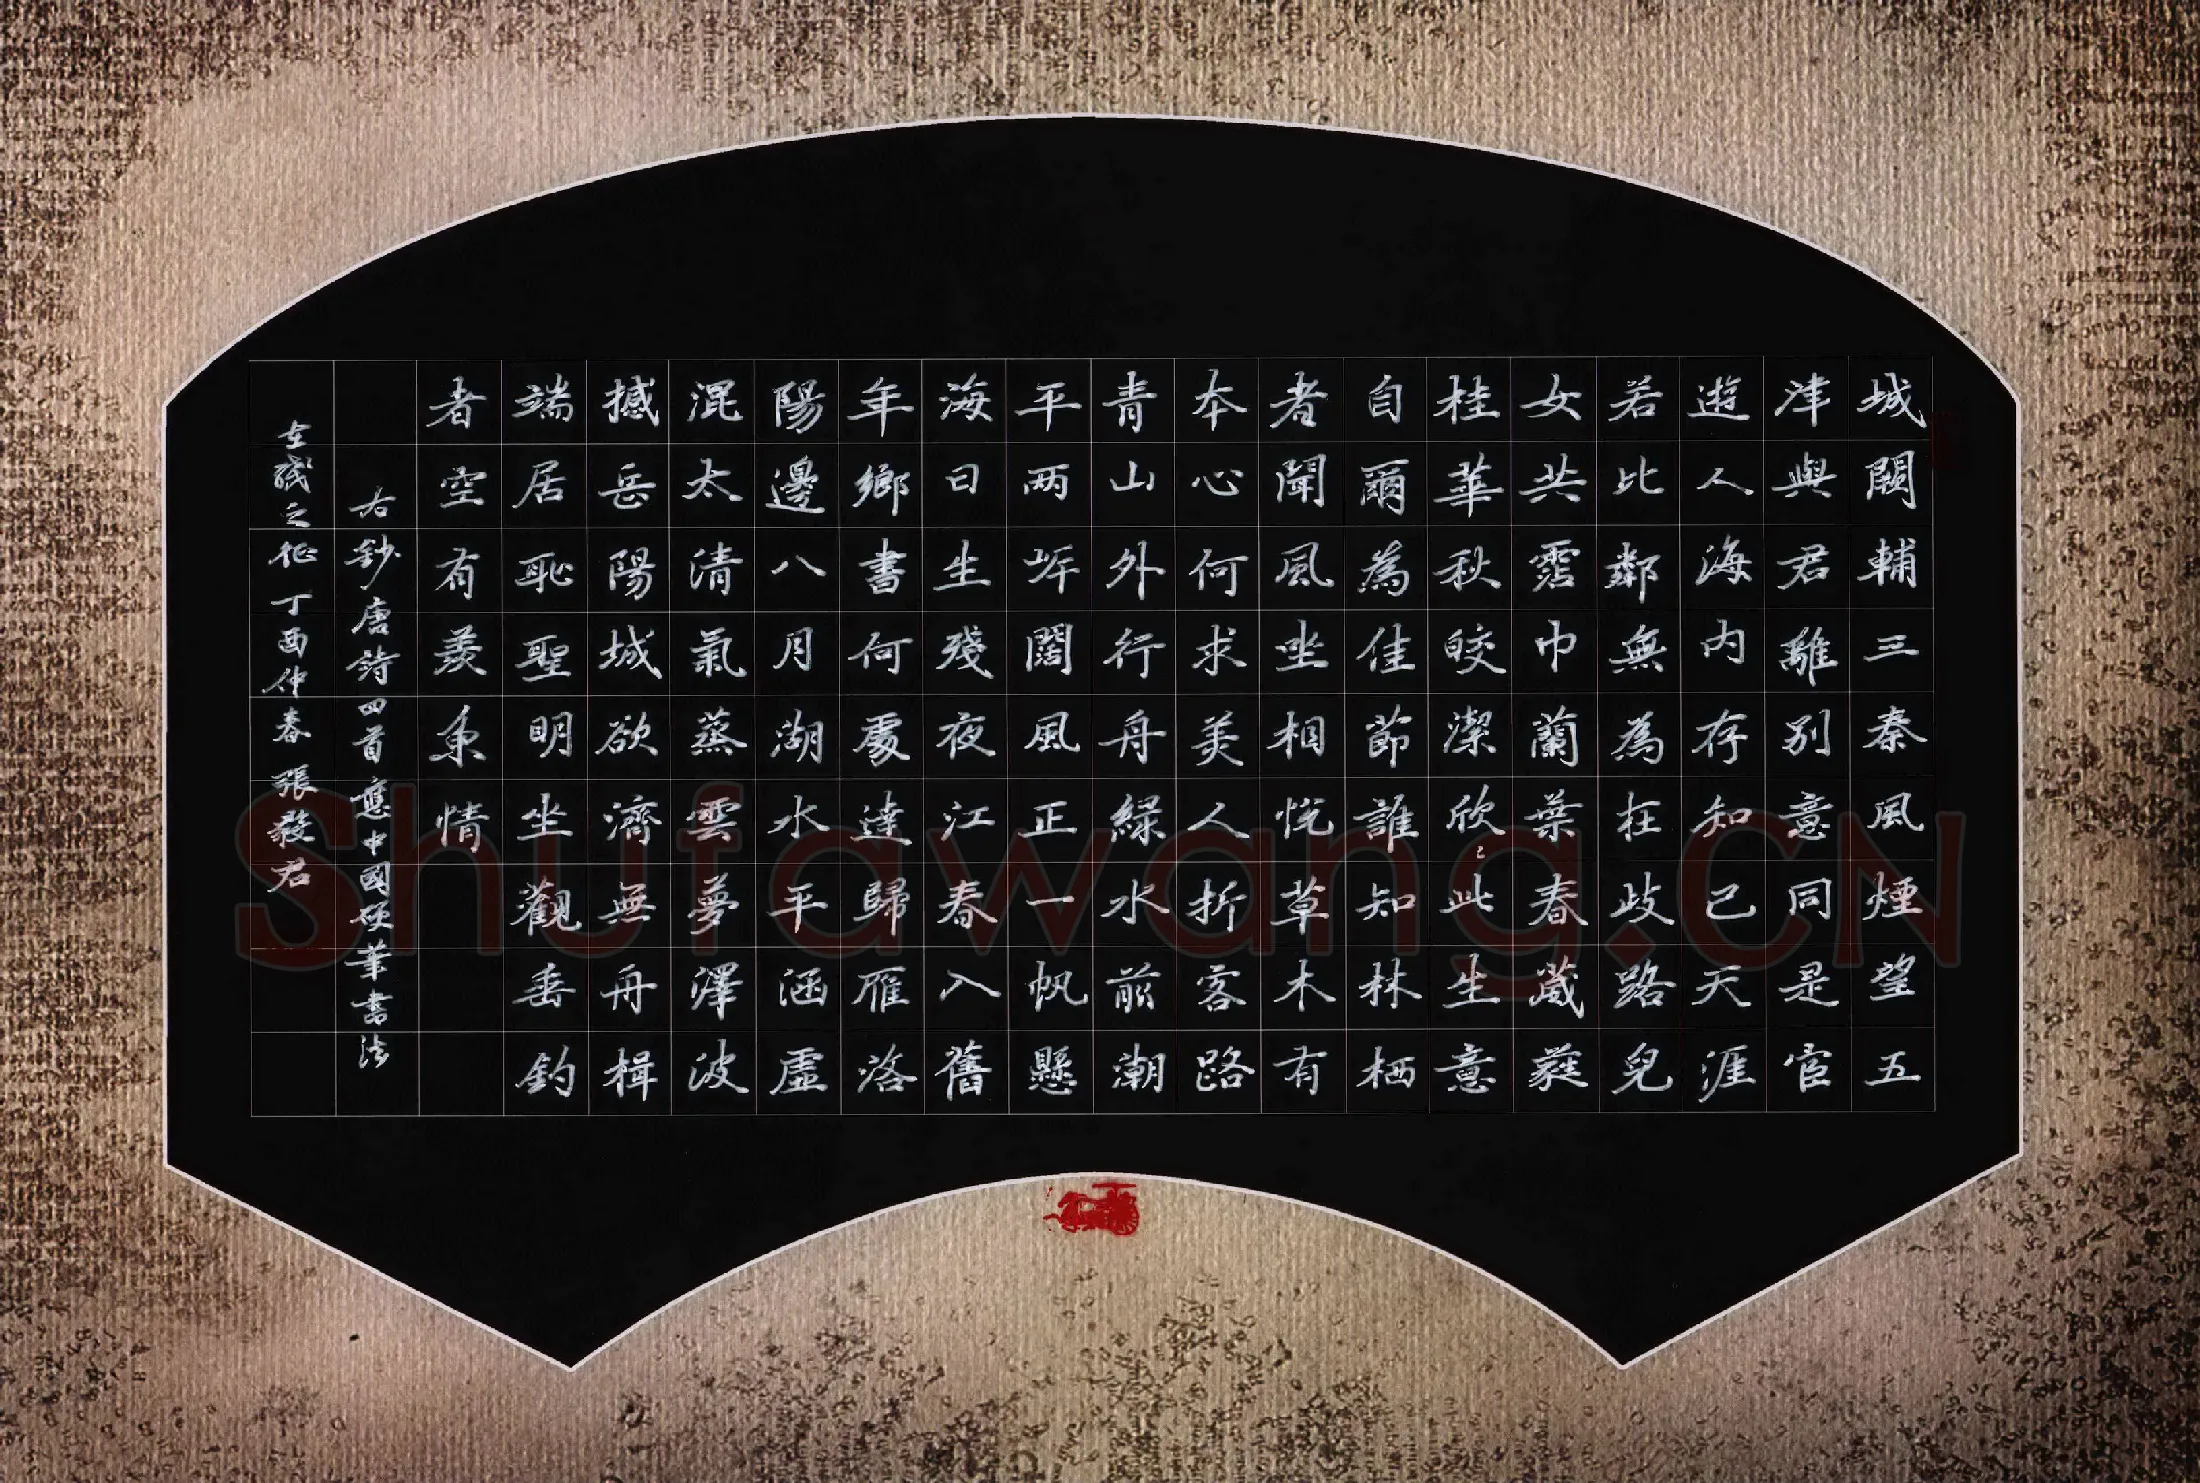 城闕輔三秦風煙望五
津與君離別意同是宦
遊人海内存知己天涯
若比鄰無為在歧路兒
女共霑巾蘭葉春葳蕤
桂華秋皎潔欣〻此生意
自爾為佳節誰知林栖
者聞風坐相悅草木有
本心何求美人折客路
青山外行舟緑水前潮
平两岸闊風正一帆懸
海日生殘夜江春入舊
年鄉書何處達歸雁洛
陽邊八月湖水平涵虛
混太清氣蒸雲夢澤波
撼岳陽城欲濟無舟楫
端居恥聖明坐觀垂釣
者空有羨魚情
右鈔唐詩四首應中國硬筆書法
在綫之征丁酉仲春張君
Shufawang.CN